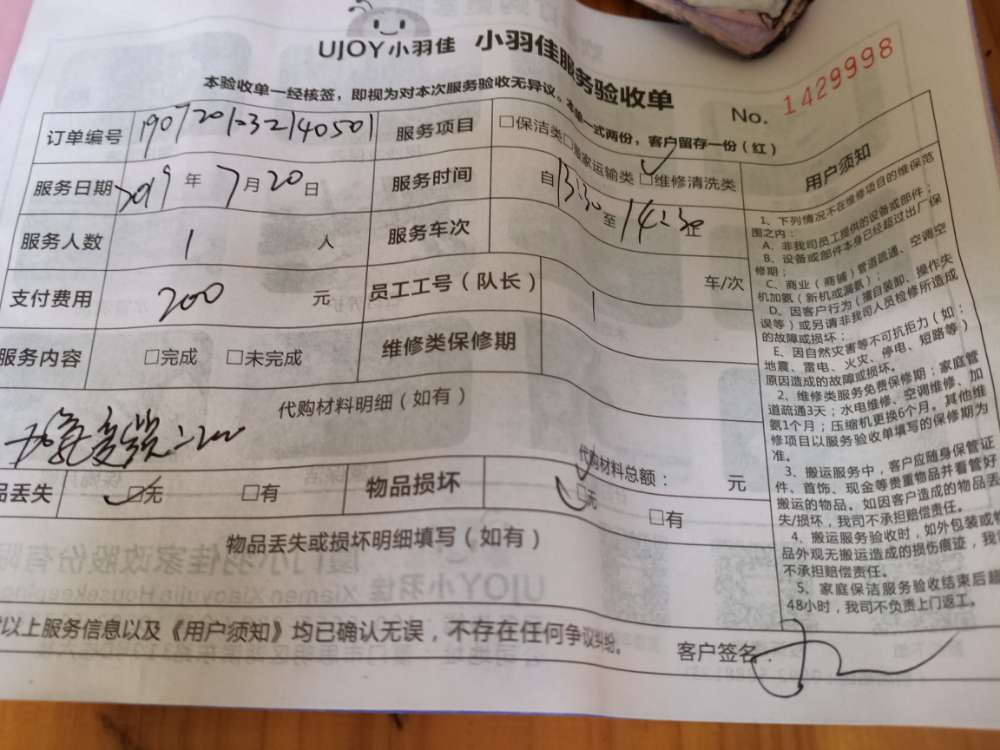 UJOY小羽佳 小羽佳服务验收单
No. 1429998
本验收单一经核签，即视为对本次服务验收无异议。本单一式两份，客户留存一份（红）
订单编号 1907201232140501 服务项目 □保洁类□搬家运输类 □维修清洗类
服务日期 2019 年 7 月 20 日 服务时间 自 13:30 至 14:30
服务人数 1 人 服务车次 车/次
支付费用 200 元 员工工号（队长）
服务内容 □完成 □未完成 维修类保修期
代购材料明细（如有）
代购材料总额： 元
品丢失 □无 □有 物品损坏 □无 □有
物品丢失或损坏明细填写（如有）
以上服务信息以及《用户须知》均已确认无误，不存在任何争议纠纷。
客户签名：
用户须知
1、下列情况不在维修项目的维保范
围之内：
A、非我司员工提供的设备或部件；
B、设备或部件本身已经超过出厂保
修期；
C、商业（商铺）管道疏通、空调空
机加氨（新机或漏氨）；
D、因客户行为（擅自装卸、操作失
误等）或另请非我司人员检修所造成
的故障或损坏；
E、因自然灾害等不可抗拒力（如：
地震、雷电、火灾、停电、短路等）
原因造成的故障或损坏。
2、维修类服务免费保修期：家庭管
道疏通3天；水电维修、空调维修、加
氨1个月；压缩机更换6个月。其他维
修项目以服务验收单填写的保修期为
准。
3、搬运服务中，客户应随身保管证
件、首饰、现金等贵重物品并看管好
搬运的物品。如因客户造成的物品丢
失/损坏，我司不承担赔偿责任。
4、搬运服务验收时，如外包装或物
品外观无搬运造成的损伤痕迹，我司
不承担赔偿责任。
5、家庭保洁服务验收结束后超
48小时，我司不负责上门返工。